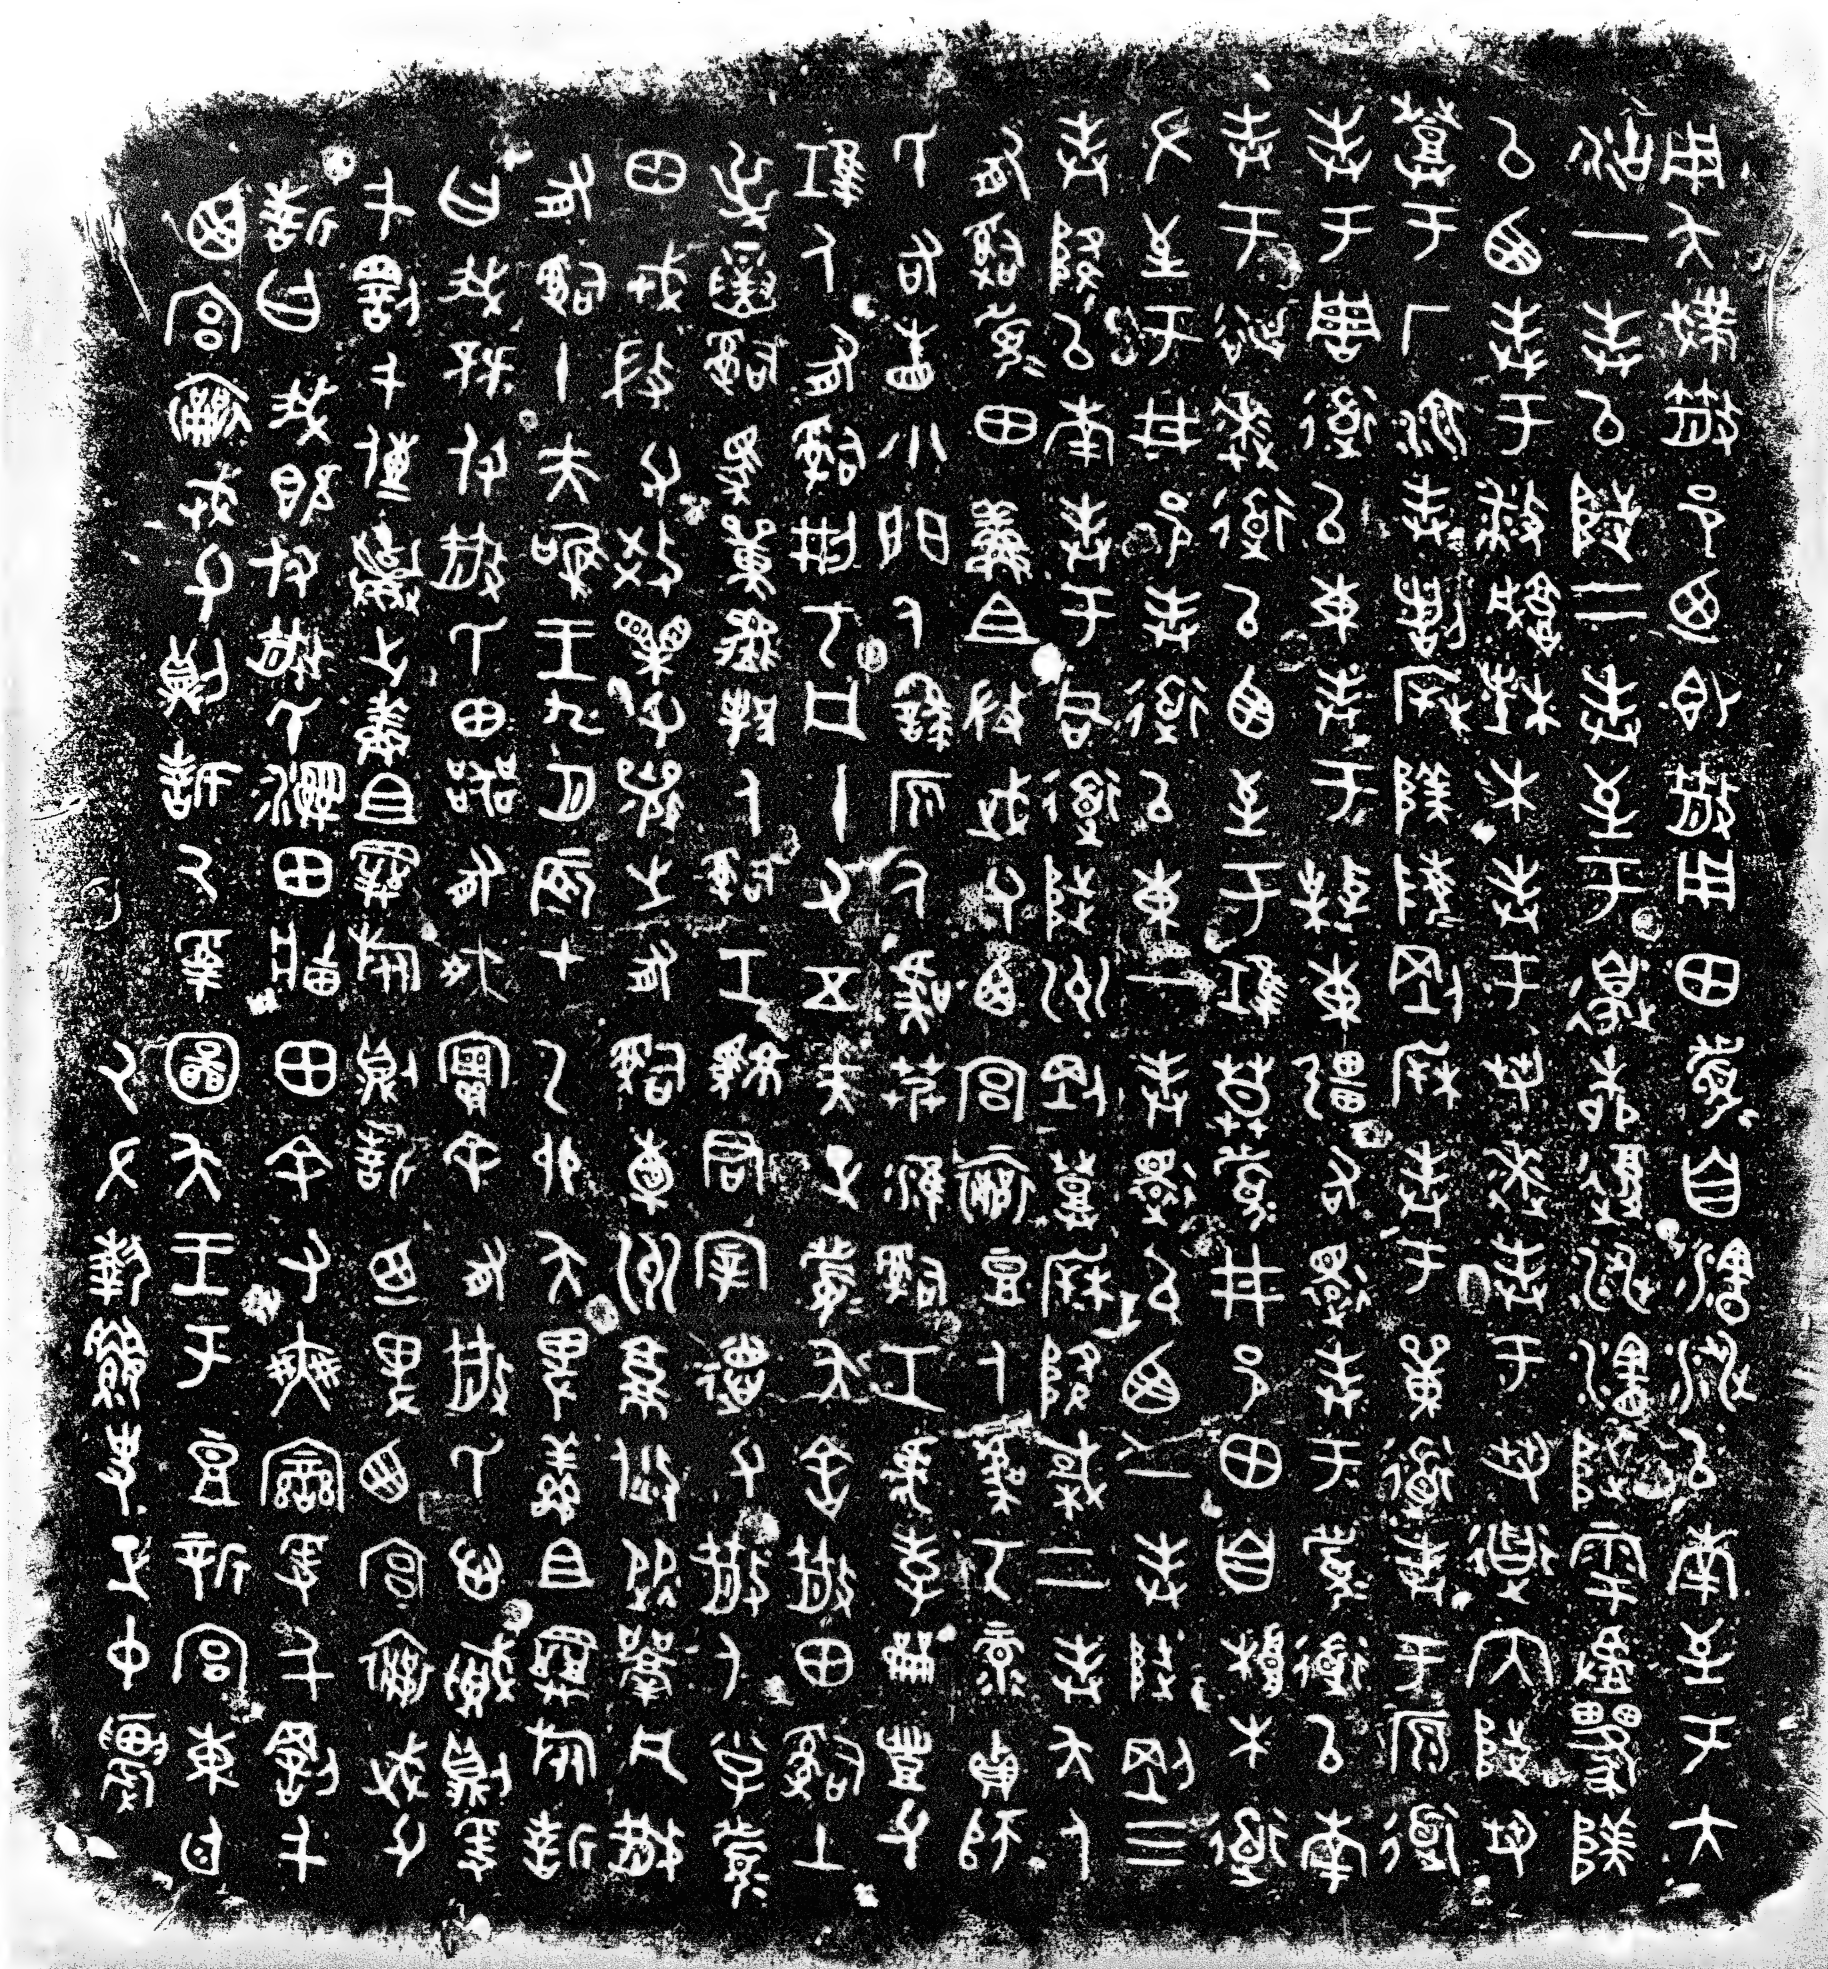 用夨𢦚散邑乃即散用田眉自瀗涉以南至于大
沽一奉以陟二奉至于邊柳復涉瀗陟雩𠭯𨤲陕
以西奉于播城楮木奉于芻逨奉于芻道内陟芻
登于厂湶奉割𣏟陕陵剛𣏟奉于𨊠道奉于原道
奉于周道以東奉于東疆右還奉于眉道以南
奉于逨道以西至于莫眉井邑田自根木道
左至于井邑奉道以東一奉還以西一奉陟剛三
奉降以南奉于同道陟州剛登𣏟降棫二奉夨人
有𤔲眉田鮮且𢼸武父西宮襄豆人虞丂彔貞師
氏右眚小門人原人虞艿淮𤔲工虎孝豐父
人有𤔲刑丂凡十又五夫正眉夨舍散田𤔲土
屰𤔲馬人𤔲工君宰德父散人小子眉
田戎𢼸父效父襄之有𤔲橐州焂從凡散
有𤔲十夫唯王九月辰才乙卯夨卑鮮且旅誓
曰我既付散氏田器有爽實余有散氏心賊則爰
千罰千傳棄之鮮且旅則誓乃卑西宮襄武父
誓曰我既付散氏濕田牆田余有爽變爰千罰千
西宮襄武父則誓厥受圖夨王于豆新宮東廷
厥左執史正中農